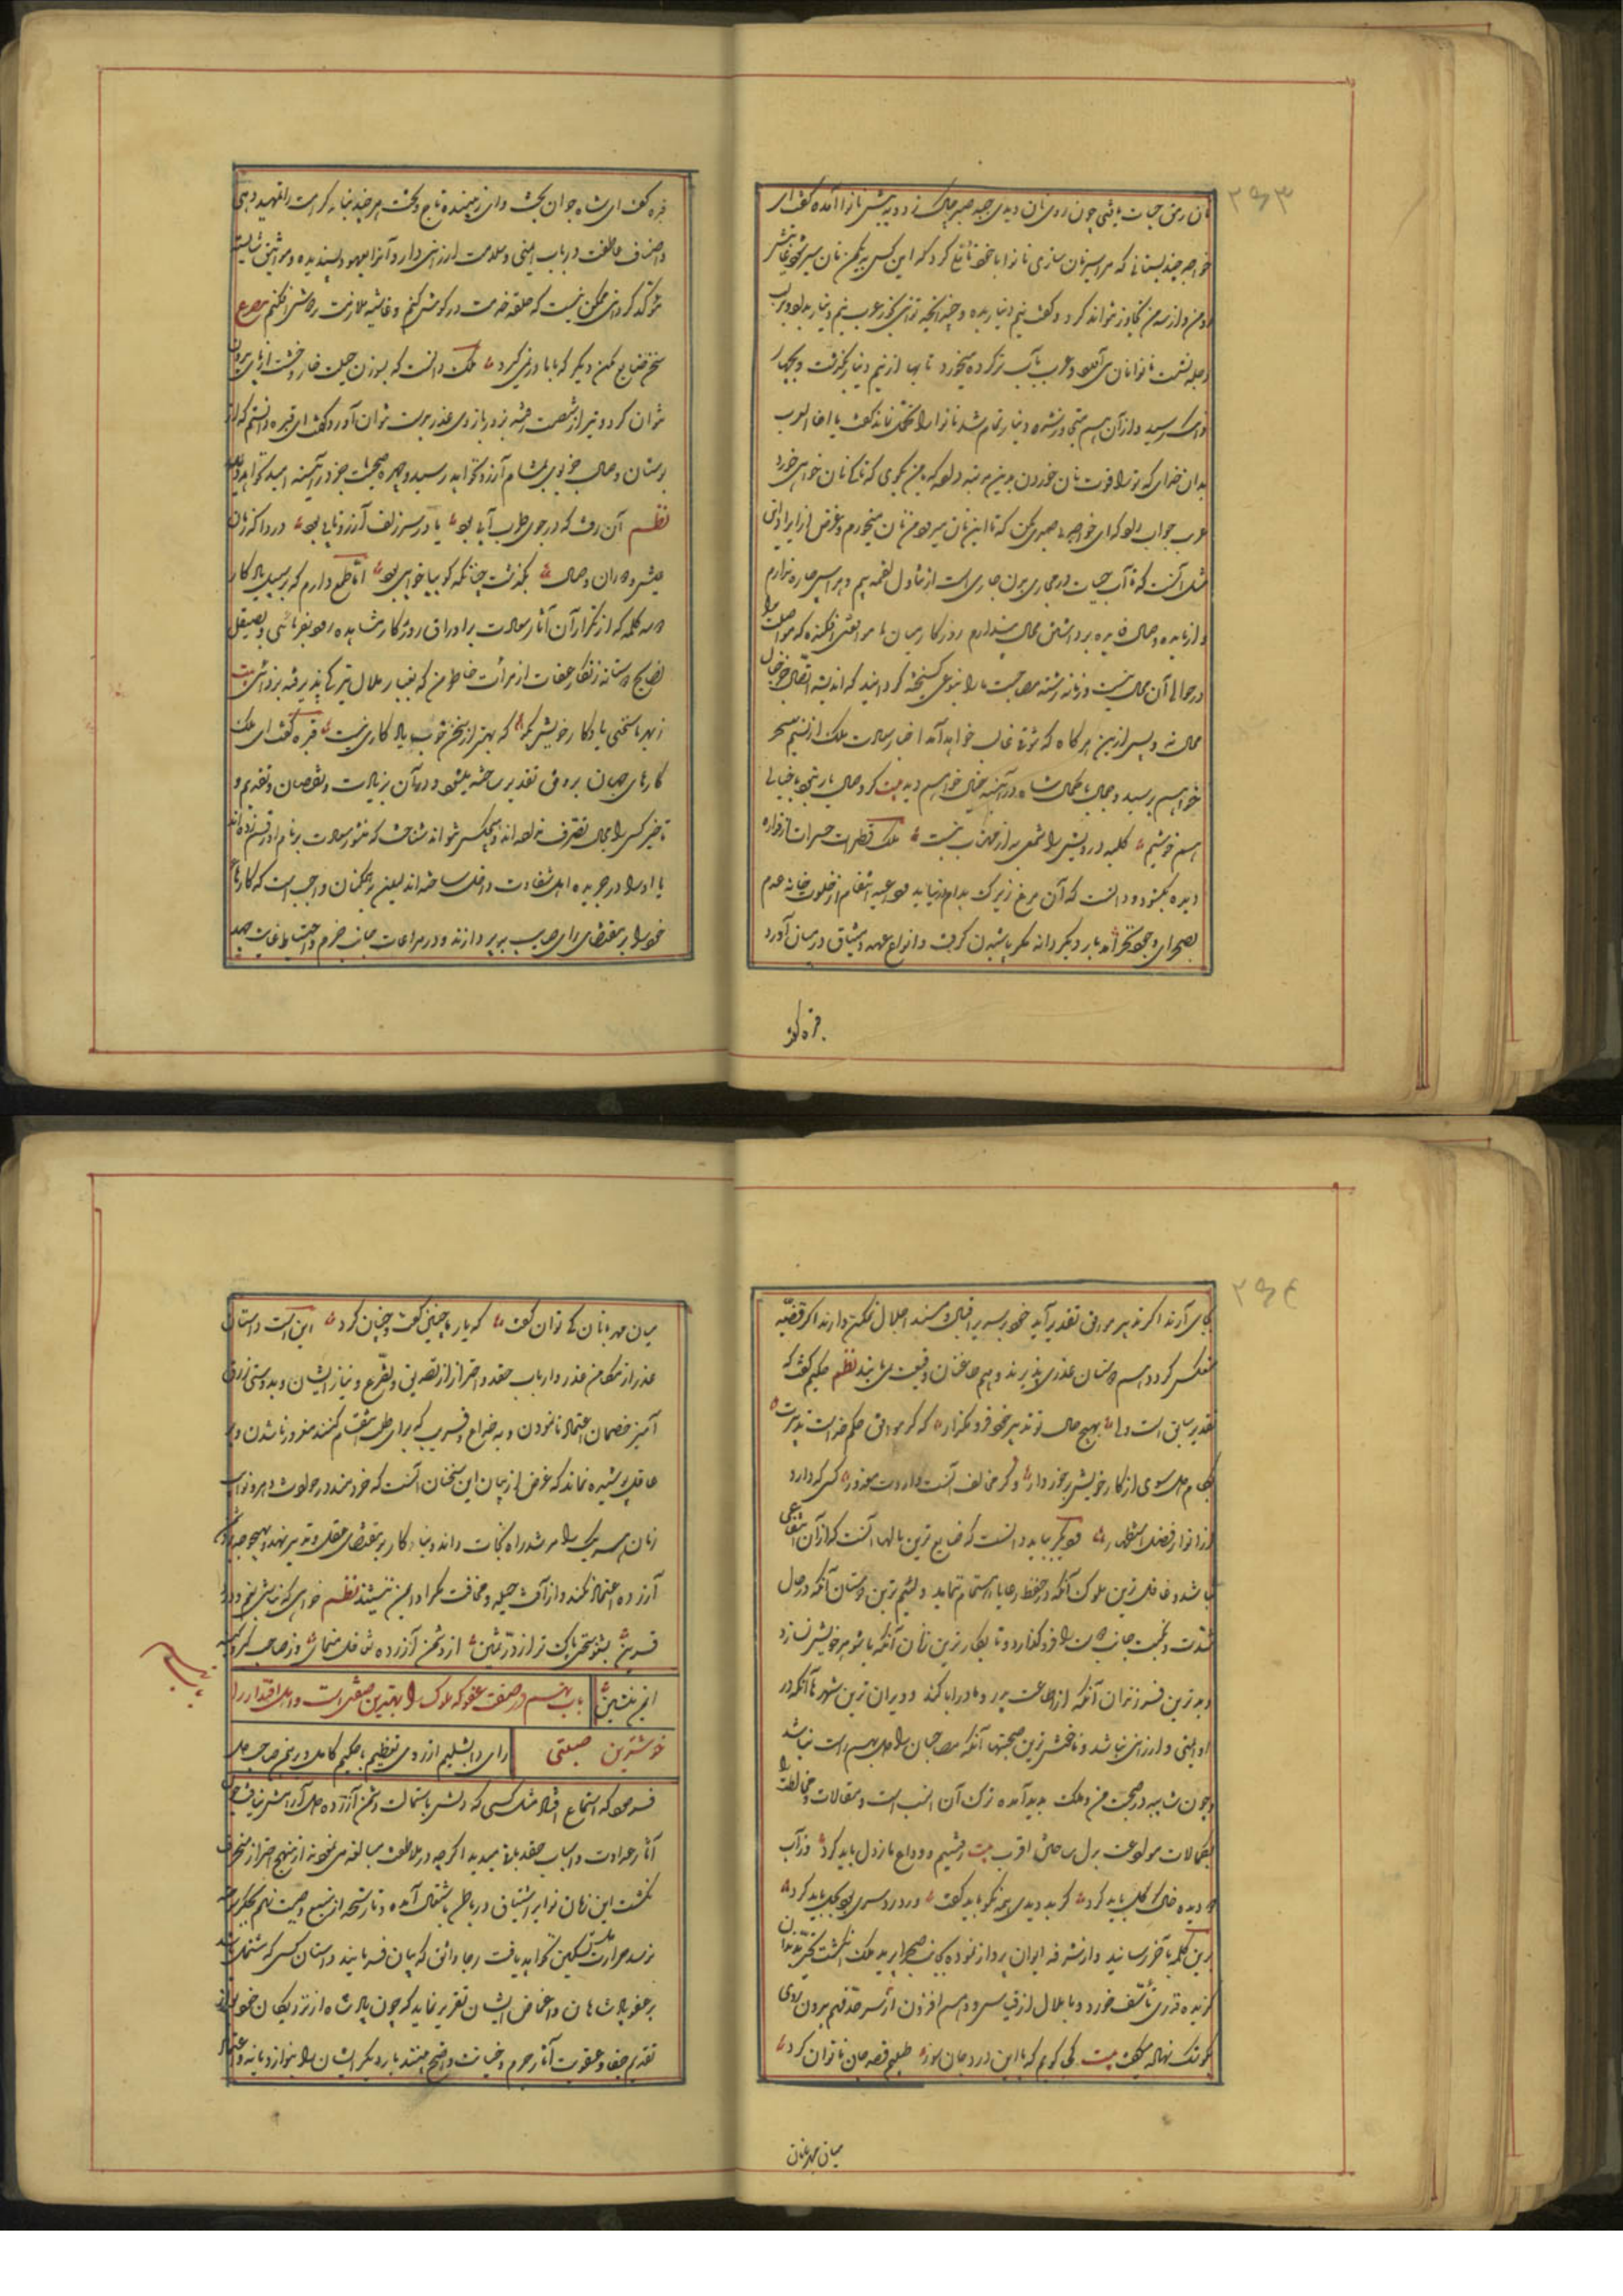 ۲۹۳
نان رمق حیات یافتی چون روی نان دیدی جبه صبر چاک زد و به پیش نانوا آمده گفت ای
خواجه چند بستانی که مرا سیر نان سازی نانوا با خود تأمل کرد که این کس به یکمن نان سیر شود غایتش
دو من و از سه من تجاوز نتواند کرد و گفت نیم دینار بده و چندانچه توانی بخور عرب نیم دینار بداد و بر لب
دجله نشست نانوا نان می آورد و عرب به آب تر کرده میخورد تا بها از نیم دینار بگذشت و به چهار
دانگ رسید و از آن هم متجاوز شده دینار تمام شد نانوا را تحمل نماند گفت یا اخا العرب
بدان خدای که ترا قوت نان خوردن بدین مرتبه داده که با من بگوی که تا کی نان خواهی خورد
عرب جواب داد که ای خواجه صبری مکن که تا این آب میرود من نان میخورم و غرض از ایراد این
مثل آنست که تا آب حیات در مجاری بدن جاری است از تناول لقمه بیم و هراس چاره ندارم
و از مایده وصال فایده برداشتن مجال نمی پندارم روزگار میان ما مفارقتی افکنده که مواصلت را
در حوالی آن مجال نیست و زمانه رشته مصاحبت ما را بنوعی گسیخته گردانید که اندیشه اتصال جز خیال
محال نه و پس ازین هر گاه که شوق غالب خواهد آمد اخبار سعادت ملک از نسیم سحر
خواهم پرسید و جمال با کمال شاه در آئینه خیال خواهم دید بیت گر وصال یار نبود با خیالی
هم خوشیم کلبه درویش را شمعی به از مهتاب نیست ملک قطرات حسرات از فواره
دیده بگشود و دانست که آن مرغ زیرک بدام نیاید و داعیه انتقام از خلوت خانه عدم
بصحرای وجود نخواهد آمد بار دیگر دانه مکر پاشیدن گرفت و انواع عهد و میثاق در میان آورد
قبره گفت
قبره گفت ای شاه جوان بخت و ای زیبنده تاج و تخت هر چند بنیاد کرامت را تمهید دهی
و اصناف عاطفت در باب ایمنی و سلامت ارزانی داری و آنرا بعهود پسندیده و مواثیق شایسته
مؤکد گردانی ممکن نیست که حلقه خدمت در گوش کنم و غاشیه ملازمت بر دوش افکنم مصرع
سخن ضایع مکن دیگر که با ما در نمی گیرد ملک دانست که بسوزن حیلت خار وحشت از پای بیرون
نتوان کرد و تیر از شصت رفته بزور بازوی غدر بدست نتوان آورد گفت ای قبره دانستم که از
بوستان وصال جز بویی بمشام آرزو نخواهد رسید و چهره صحبت جز در آئینه امید نخواهم دید
نظم آن رفت که در جوی طرب آبی بود یا در سر زلف آرزو تابی بود دردا که زمان
عیش و دوران وصال بگذشت چنانکه گوییا خوابی بود اما طمع دارم که بر سبیل یادگار
دو سه کلمه که از تکرار آن آثار سعادت بر اوراق روزگار مشاهده رود بفرمائی و بصیقل
نصایح دوستانه زنگار غفلت از مرآت خاطر من که بغبار ملال تیرگی پذیرفته بزدائی بیت
از بهر ما سخنی یادگار خویش بگو که بهتر از سخن خوب یادگاری نیست قبره گفت ای ملک
کارهای جهان بر وفق تقدیر ساخته میشود و در آن بزیادت و نقصان و تقدیم و
تأخیر کسی را مجال تصرف نداده اند و هیچکس نتواند شناخت که منشور سعادت بر نام او رقم زده اند
یا او را در جریده اهل شقاوت داخل ساخته اند لیکن بر همگنان واجب است که کارهای
خود را بر مقتضای رای صایب بپردازند و در مراعات جانب حزم و احتیاط غایت جهد
۲۹٤
بجای آرند اگر تدبیر موافق تقدیر آید خود بر سریر اقبال و مسند اجلال تمکن دارند و اگر قضیه
منعکس گردد هم دوستان عذر می پذیرند و هم طاعنان وقیعت نمی یابند نظم حکیم گفت که
تقدیر سابق است ولی بهیچ حال تو تدبیر خود فرو مگذار که گر موافق حکم قضاست تدبیرت
بکام دل شوی از کار خویش برخوردار وگر مخالف آنست داردت معذور کسی که دارد
از انوار فضل استظهار و دیگر بباید دانست که ضایع ترین مالها آنست که از آن انتفاعی
نباشد و غافل ترین ملوک آنکه در حفظ رعایا اهتمام ننماید و لئیم ترین دوستان آنکه در حال
شدت و نکبت جانب دوست را فرو گذارد و نابکار ترین زنان آنکه با شوهر خویش نسازد
و بد ترین فرزندان آنکه از اطاعت پدر و مادر ابا کند و ویران ترین شهرها آنکه در
او ایمنی و ارزانی نباشد و ناخوشترین صحبتها آنکه مصاحبان را دل بهم راست نباشد
و چون شایبه در صحبت من و ملک پدید آمده ترک آن انسب است و مقالات و مخالطت را
بکمالات موادعت بدل ساختن اقرب بیت رفتیم و وداع ما ز دل باید کرد وز آب
دو دیده خاک گل باید کرد گر بد دیدی همه نکو باید گفت ور درد سری بود بحل باید کرد
برین کلمه بآخر رسانید و از شرفه ایوان پرواز نموده بجانب صحرا پرید ملک انگشت تحیر بدندان
گزیده قدری تأسف خورد و با ملال از قیاس و درهم افزون از سر حد قیم بیرون روی
بکوشک نهاد و میگفت بیت کی گویم که با این درد جان سوز طبیبم قصد جان ناتوان کرد
میان مهربانان
میان مهربانان کی توان گفت که یار ما چنین گفت و چنان کرد این است داستان
حذر از مکامن غدر و ارباب حقد و احتراز از تصدیق و تضرع و نیاز ایشان و بدوستی زرق
آمیز خصمان اعتماد نانمودن و بخداع و فریب که برای طلب انتقام کنند مغرور ناشدن و بر
عاقل پوشیده نماند که غرض از بیان این سخنان آنست که خردمند در حوادث دهر و نوائب
زمان هر یک را مرشد راه نجات داند و بنای کار بر مقتضای عقل و تدبیر نهد و بهیچ وجه بر دشمن
آزرده اعتماد نکند و از آفت حیله و مخافت مکر او ایمن ننشیند نظم خواهی که نباشی بغم و درد
قرین بشنو سخنی پاک تر از در ثمین از دشمن آزرده تغافل منمای وز صاحب کبر و کینه
ایمن منشین باب نهم در صفت عفو که ملوک را بهترین صفتی است و اهل اقتدار را
خوشترین صنعتی رای دابشلیم از روی تعظیم با حکیم کامل درین صاحبدل
فرمود که استماع افتاد مثل کسی که دلش باستمالت دشمن آزرده دل آرامش نیافت و چون
آثار عداوت و اسباب حقد باقی میدید اگرچه در ملاطفت مبالغه می نمود از منهج احتراز منحرف
نگشت این زمان نوایر اشتیاق در باطن باشتعال آمده و تا رشحه از ینبوع وصیت نهم بجگر سوخته
نرسد حرارت طلب تسکین نخواهد یافت رجا واثق که بیان فرمایند داستان کسی که مشتمل باشد
بر عفو پادشاهان و اغماض ایشان تقریر نماید که چون پادشاه از نزدیکان خود بعد از
تقدیم جفا و عقوبت آثار جرم و خیانت واضح بیند بار دیگر ایشان را بنوازد یا نه و اعتماد